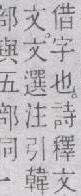 借字也。詩釋文
文。文選注引韓
部與五部同一